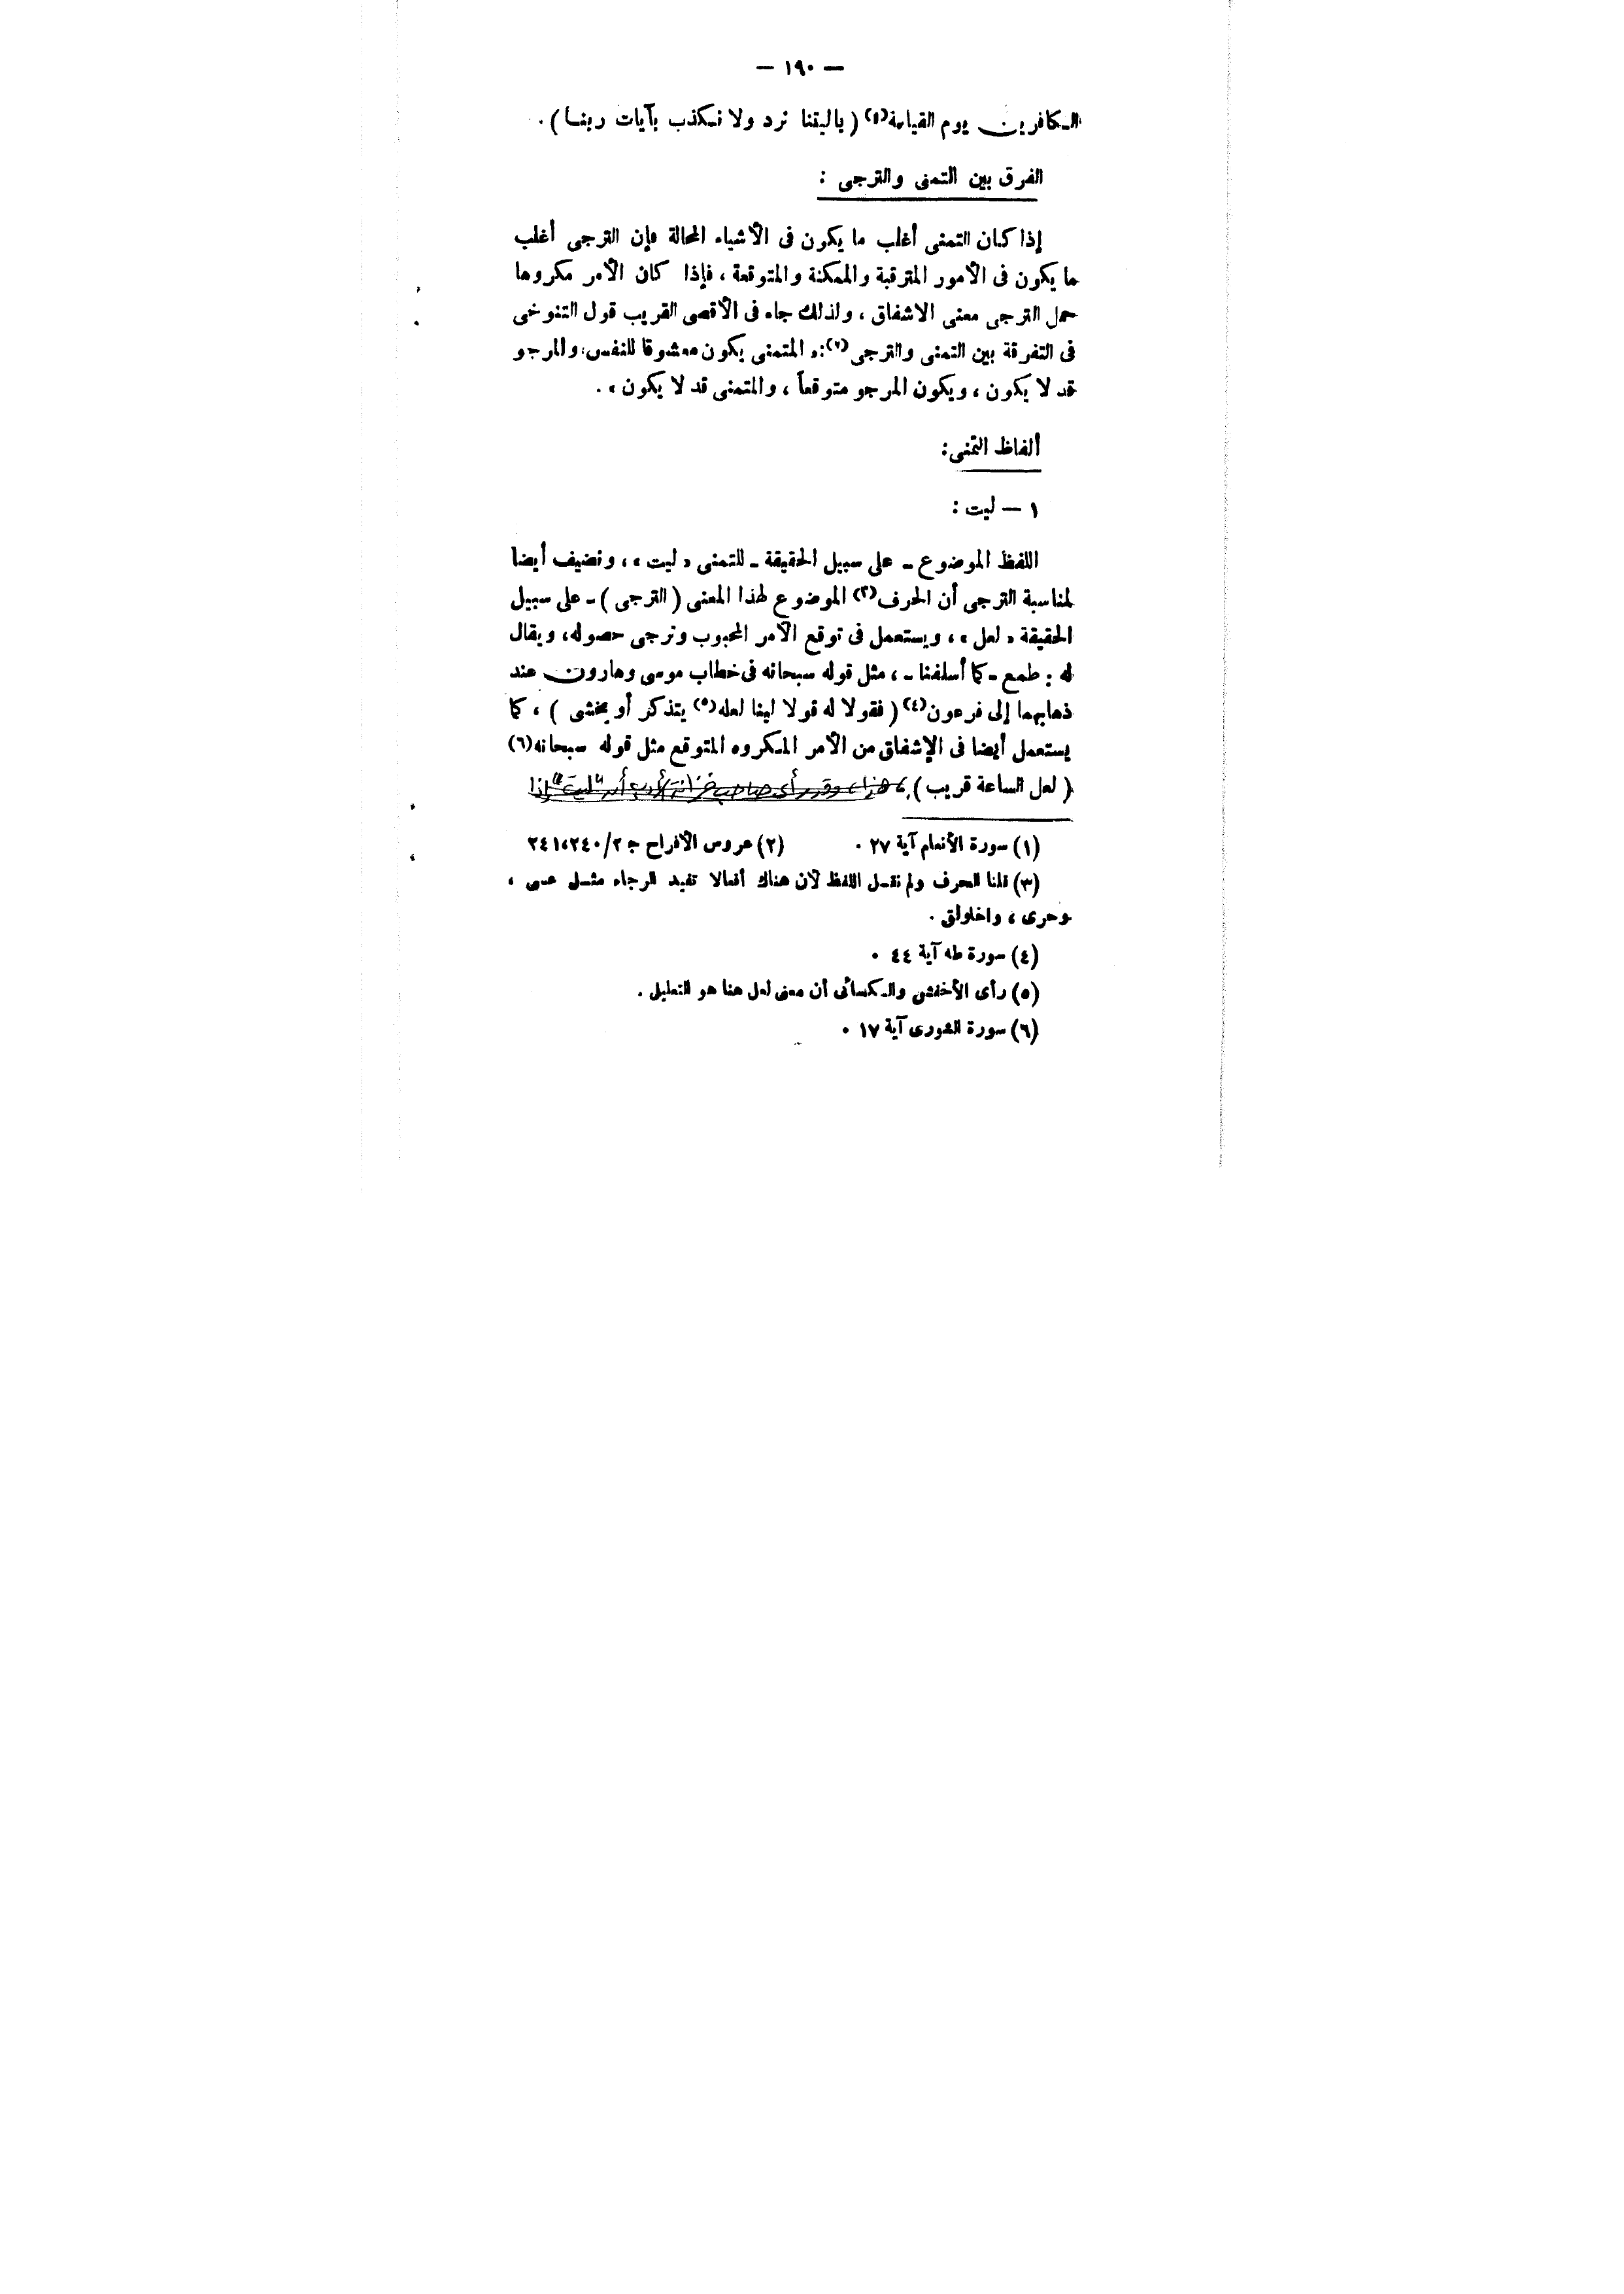 — ١٩٠ —
الكافرين يوم القيامة(١) ( ياليتنا نرد ولا نكذب بآيات ربنا ) .
الفرق بين التمنى والترجى :
إذا كان التمنى أغلب ما يكون فى الأشياء المحالة فإن الترجى أغلب
ما يكون فى الأمور المترقبة والممكنة والمتوقعة ، فإذا كان الأمر مكروها
حمل الترجى معنى الاشفاق ، ولذلك جاء فى الأقصى القريب قول التنوخى
فى التفرقة بين التمنى والترجى(٢) : « المتمنى يكون معشوقا للنفس ، والمرجو
قد لا يكون ، ويكون المرجو متوقعاً ، والمتمنى قد لا يكون » .
ألفاظ التمنى :
١ — ليت :
اللفظ الموضوع - على سبيل الحقيقة - للتمنى « ليت » ، ونضيف أيضا
لمناسبة الترجى أن الحرف(٣) الموضوع لهذا المعنى ( الترجى ) - على سبيل
الحقيقة « لعل » ، ويستعمل فى توقع الأمر المحبوب وترجى حصوله ، ويقال
له : طمع - كما أسلفنا - ، مثل قوله سبحانه فى خطاب موسى وهارون عند
ذهابهما إلى فرعون(٤) ( فقولا له قولا لينا لعله(٥) يتذكر أو يخشى ) ، كما
يستعمل أيضا فى الإشفاق من الأمر المكروه المتوقع مثل قوله سبحانه(٦)
( لعل الساعة قريب ) ، هذا ، وقد رأى صاحب خزانة الأدب أن "ليت" إذا
(١) سورة الأنعام آية ٢٧ . (٢) عروس الأفراح ج ٢/٢٤٠، ٢٤١
(٣) قلنا الحرف ولم نقل اللفظ لأن هناك أفعالا تفيد الرجاء مثل عسى ،
وحرى ، واخلولق .
(٤) سورة طه آية ٤٤ .
(٥) رأى الأخفش والكسائى أن معنى لعل هنا هو التعليل .
(٦) سورة الشورى آية ١٧ .